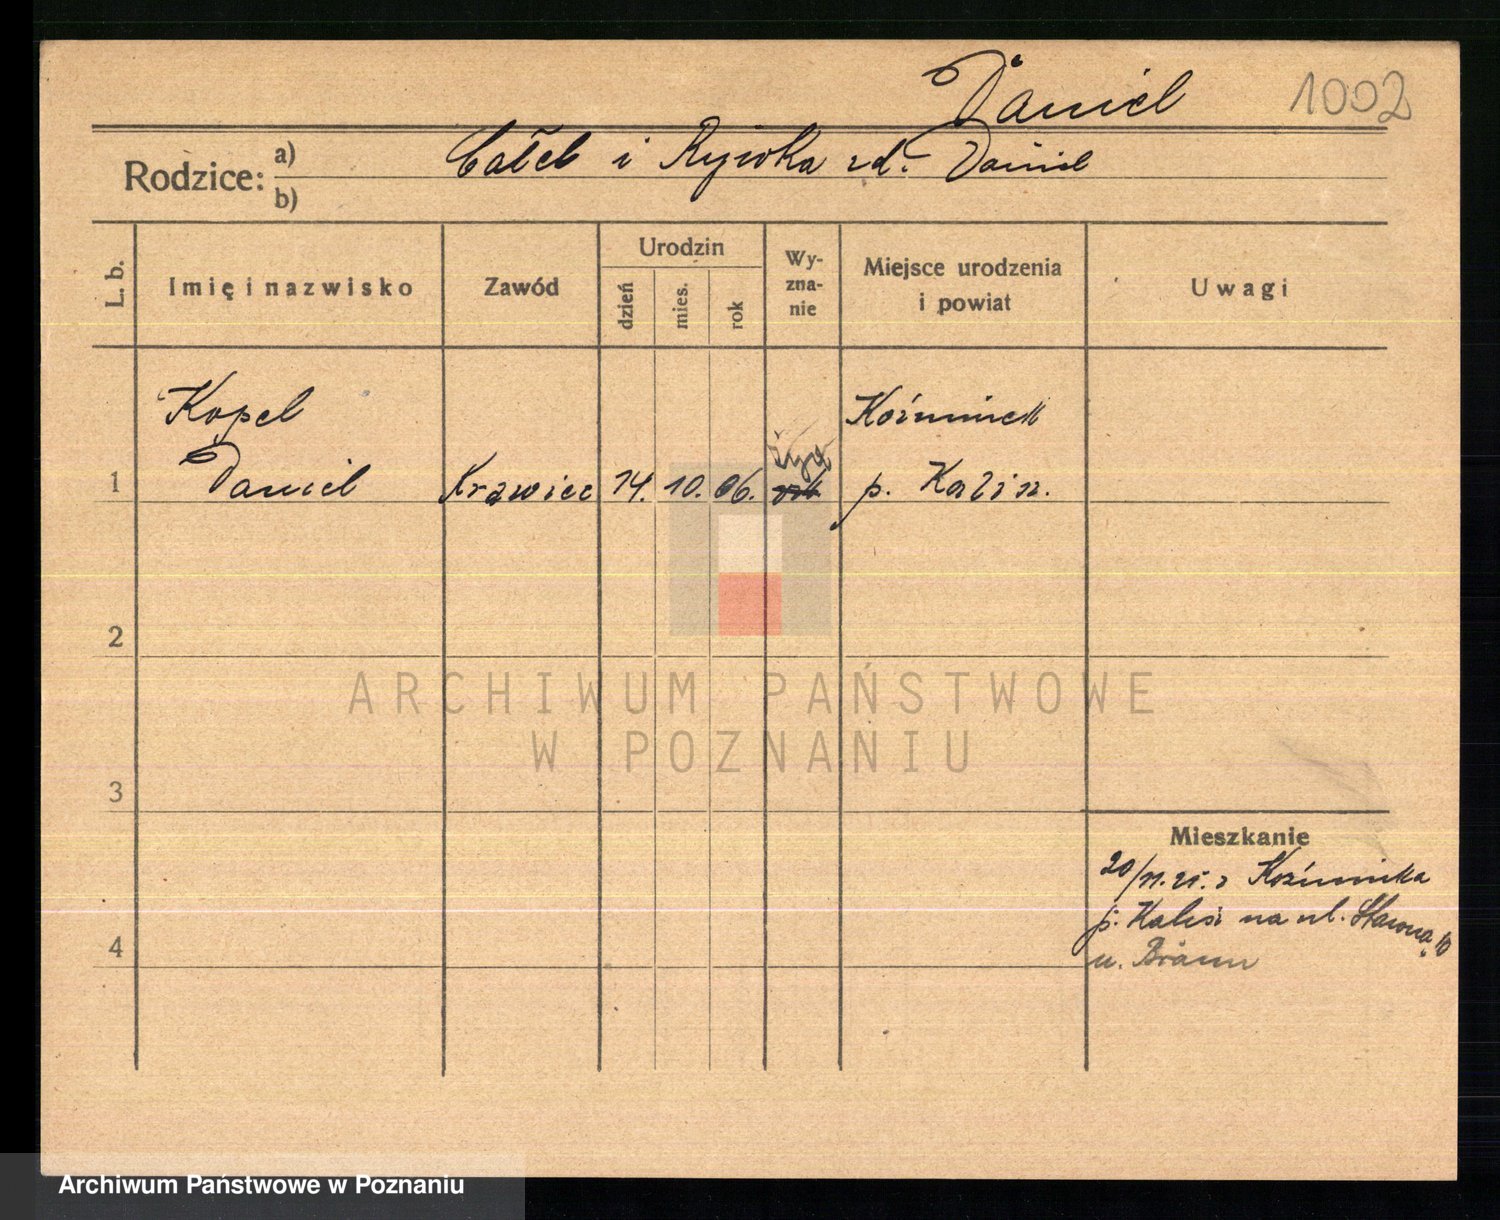 Daniel 1002
Rodzice: a) Całel i Rywka zd. Daniel
b)
L. b. Imię i nazwisko Zawód Urodzin dzień mies. rok Wy-zna-nie Miejsce urodzenia i powiat Uwagi
Kopel Koźminek
1 Daniel Krawiec 14. 10. 06. p. Kalisz.
2
ARCHIWUM PAŃSTWOWE
W POZNANIU
3
Mieszkanie
20/11.25. z Koźminka
4 p. Kalisz na ul. 10
u. Braun
Archiwum Państwowe w Poznaniu